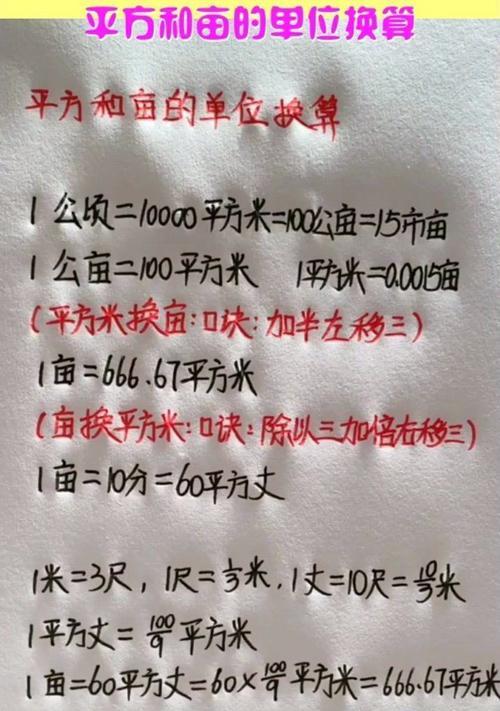 平方和亩的单位换算
平方和亩的单位换算
1公顷=10000平方米=100公亩=15市亩
1公亩=100平方米 1平方米=0.0015亩
(平方米换亩:口诀:加半左移三)
1亩=666.67平方米
(亩换平方米:口诀:除以三加倍右移三)
1亩=10分=60平方丈
1米=3尺,1尺=1/3米,1丈=10尺=10/3米
1平方丈=100/9平方米
1亩=60平方丈=60×100/9平方米=666.67平方米